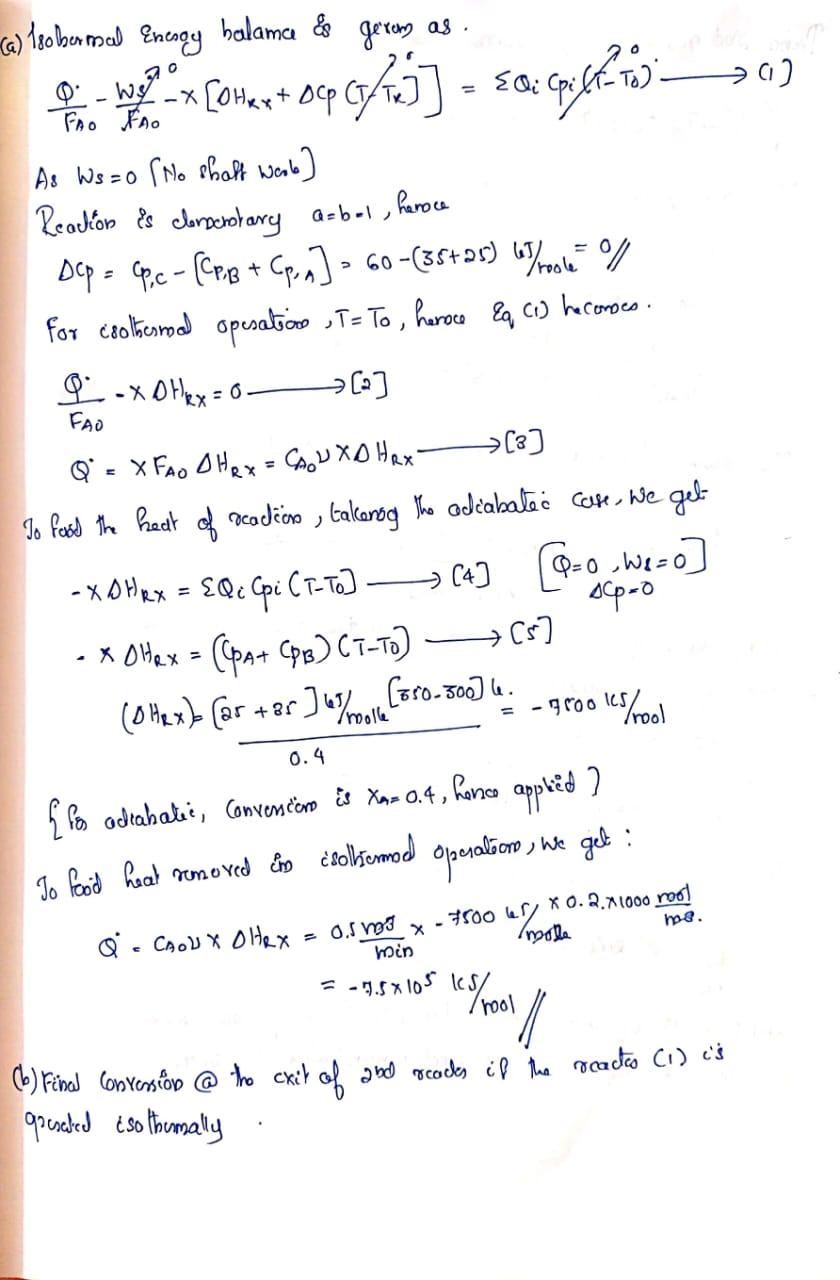 (a) Isothermal Energy balance is given as.
Q̇/FAO - Ẇs/FAO →0 - X [ΔHRX + ΔCp (T-TR)→0] = ΣQi Cpi (T-T0)→0 ⟶ (1)
As Ws = 0 [No shaft work]
Reaction is elementary a=b=1, hence
ΔCp = Cp,C - [Cp,B + Cp,A] = 60 - (35+25) kJ/mole = 0//
For isothermal operation, T=T0, hence Eq (1) becomes.
Q̇/FAO - X ΔHRX = 0 ⟶ [2]
Q̇ = X FAO ΔHRX = CAO υ X ΔHRX ⟶ [3]
To find the heat of reaction, taking the adiabatic case, we get
-X ΔHRX = ΣQi Cpi (T-T0] ⟶ [4] [Q=0, Ws=0]
ΔCp=0
- X ΔHRX = (CpA + CpB) (T-T0) ⟶ [5]
(ΔHRX) = [25 + 35] kJ/mole [350-300] k. / 0.4 = - 7500 kJ/mol
{ for adiabatic, Conversion is XA= 0.4, hence applied }
To find heat removed in isothermal operation, we get :
Q̇ = CAO υ X ΔHRX = 0.5 m3/min x - 7500 kJ/mole x 0.2 x 1000 mol/m3.
= - 7.5 x 10⁵ kJ/mol //
(b) Final Conversion @ the exit of 2nd reactor if the reactor (1) is
operated isothermally .